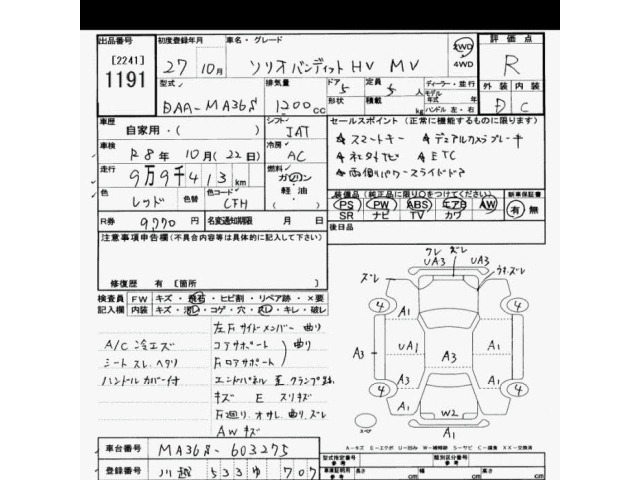 出品番号 初度登録年月 車名・グレード 評価点
[2241]
1191
27 10月 ソリオバンディット HV MV 2WD 4WD R
型式 排気量 ドア 定員 ディーラー・並行 外装 内装
DAA-MA36S 1200cc 5 5人 モデル年式 年 D C
形状 積載 kg ハンドル 左・右
車歴 シフト セールスポイント(正常に機能するものに限ります)
自家用・( ) IAT
★スマートキー ★デュアルカメラブレーキ
車検 冷房
R8年 10月(22日) AC
★社外ナビ ★ETC
走行 燃料
9万9千413km ガソリン 軽油
★両側パワースライドドア
色 色替 色コード
レッド CFH
装備品 (純正品に限り○をつけてください) 新車保証書
PS PW ABS エアB AW 有 無
SR ナビ TV カワ
R券 9,770円 名変通知期限 月 日
後日品
注意事項申告欄(不具合内容等は具体的に記入して下さい)
修復歴 有 [箇所 ]
検査員記入欄 FW キズ・飛石・ヒビ割・リペア跡・×要
内装 キズ・汚レ・コゲ・穴・スレ・キレ・破レ
左右サイドメンバー 曲り
A/C 冷エズ コアサポート 曲り
シート スレ ヘタリ 右ロアサポート
ハンドルカバー付 エンドパネル 歪 クランプ跡
キズ E スリキズ
AWキズ
クレ ズレ
UA3 UA3
ズレ
4 A1 4
A3 UA1 A3 A1 A1
4 A3 A1 4
W2
A1 A1
スペア
A-キズ E-エクボ U-凹み W-補修跡 S-サビ C-腐食 XX-交換済
車台番号 MA36S-603275
登録番号 川越 533 ゆ 707
型式指定番号 参考 類別区分番号 参考
車検証記録 参考 長さ cm 幅 cm 高さ cm